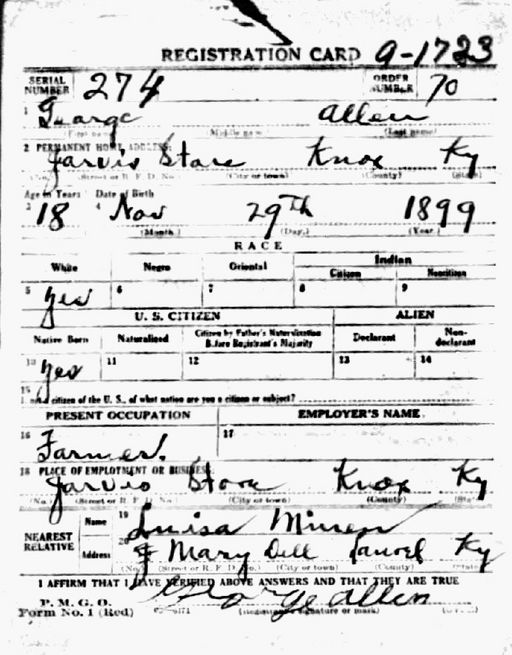 REGISTRATION CARD 9-1723
SERIAL NUMBER 274 ORDER NUMBER 70
1 George Allen
(First name) (Middle name) (Last name)
2 PERMANENT HOME ADDRESS:
Jarvis Store Knox Ky
(No.) (Street or R. F. D. No.) (City or town) (County) (State)
Age in Years Date of Birth
3 18 4 Nov 29th 1899
(Month.) (Day.) (Year.)
RACE
White Negro Oriental Indian
Citizen Noncitizen
5 Yes 6 7 8 9
U. S. CITIZEN ALIEN
Native Born Naturalized Citizen by Father's Naturalization Before Registrant's Majority Declarant Non-declarant
10 Yes 11 12 13 14
15
If not a citizen of the U. S., of what nation are you a citizen or subject?
PRESENT OCCUPATION EMPLOYER'S NAME
16 Farmer. 17
18 PLACE OF EMPLOYMENT OR BUSINESS:
Jarvis Store Knox Ky
(No.) (Street or R. F. D. No.) (City or town) (County) (State)
NEAREST RELATIVE Name 19 Luisa
Address 20 Mary Dell Laurel Ky
(No.) (Street or R. F. D. No.) (City or town) (County) (State)
I AFFIRM THAT I HAVE VERIFIED ABOVE ANSWERS AND THAT THEY ARE TRUE
P. M. G. O.
Form No. 1 (Red) George Allen
(Registrant's signature or mark)